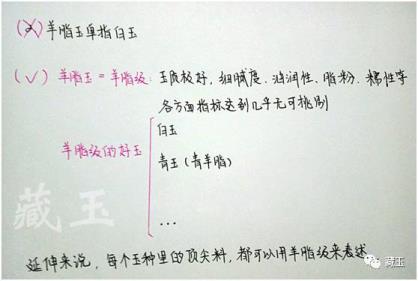 (×) 羊脂玉单指白玉
(√) 羊脂玉 = 羊脂级: 玉质极好, 细腻度、油润性、脂粉、糯性等
各方面指标达到几乎无可挑剔
羊脂级的好玉
白玉
青玉 (青羊脂)
...
藏玉
延伸来说, 每个玉种里的顶尖料, 都可以用羊脂级来表述
藏玉